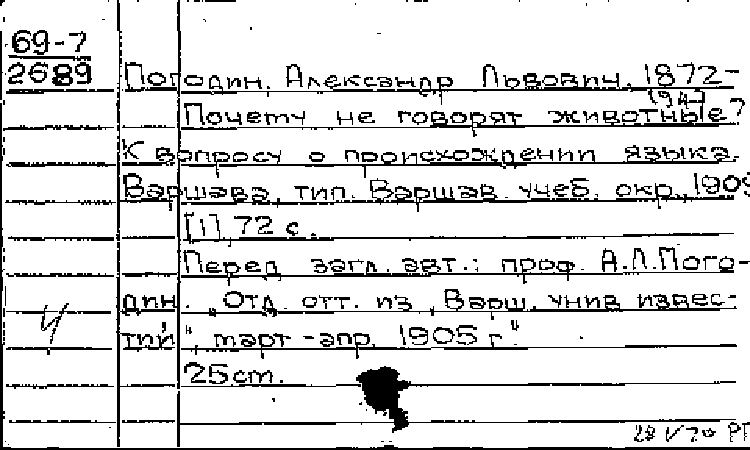 69-7
2689
Погодин, Александр Львович, 1872-
Почему не говорят животные?
К вопросу о происхождении языка.
Варшава, тип. Варшав. учеб. окр., 1905
[1], 72 с.
Перед загл. авт.: проф. А.Л.Пого-
дин. „Отд. отт. из „Варш. унив. извес-
тий", март-апр. 1905 г."
25 cm.
28 V 70